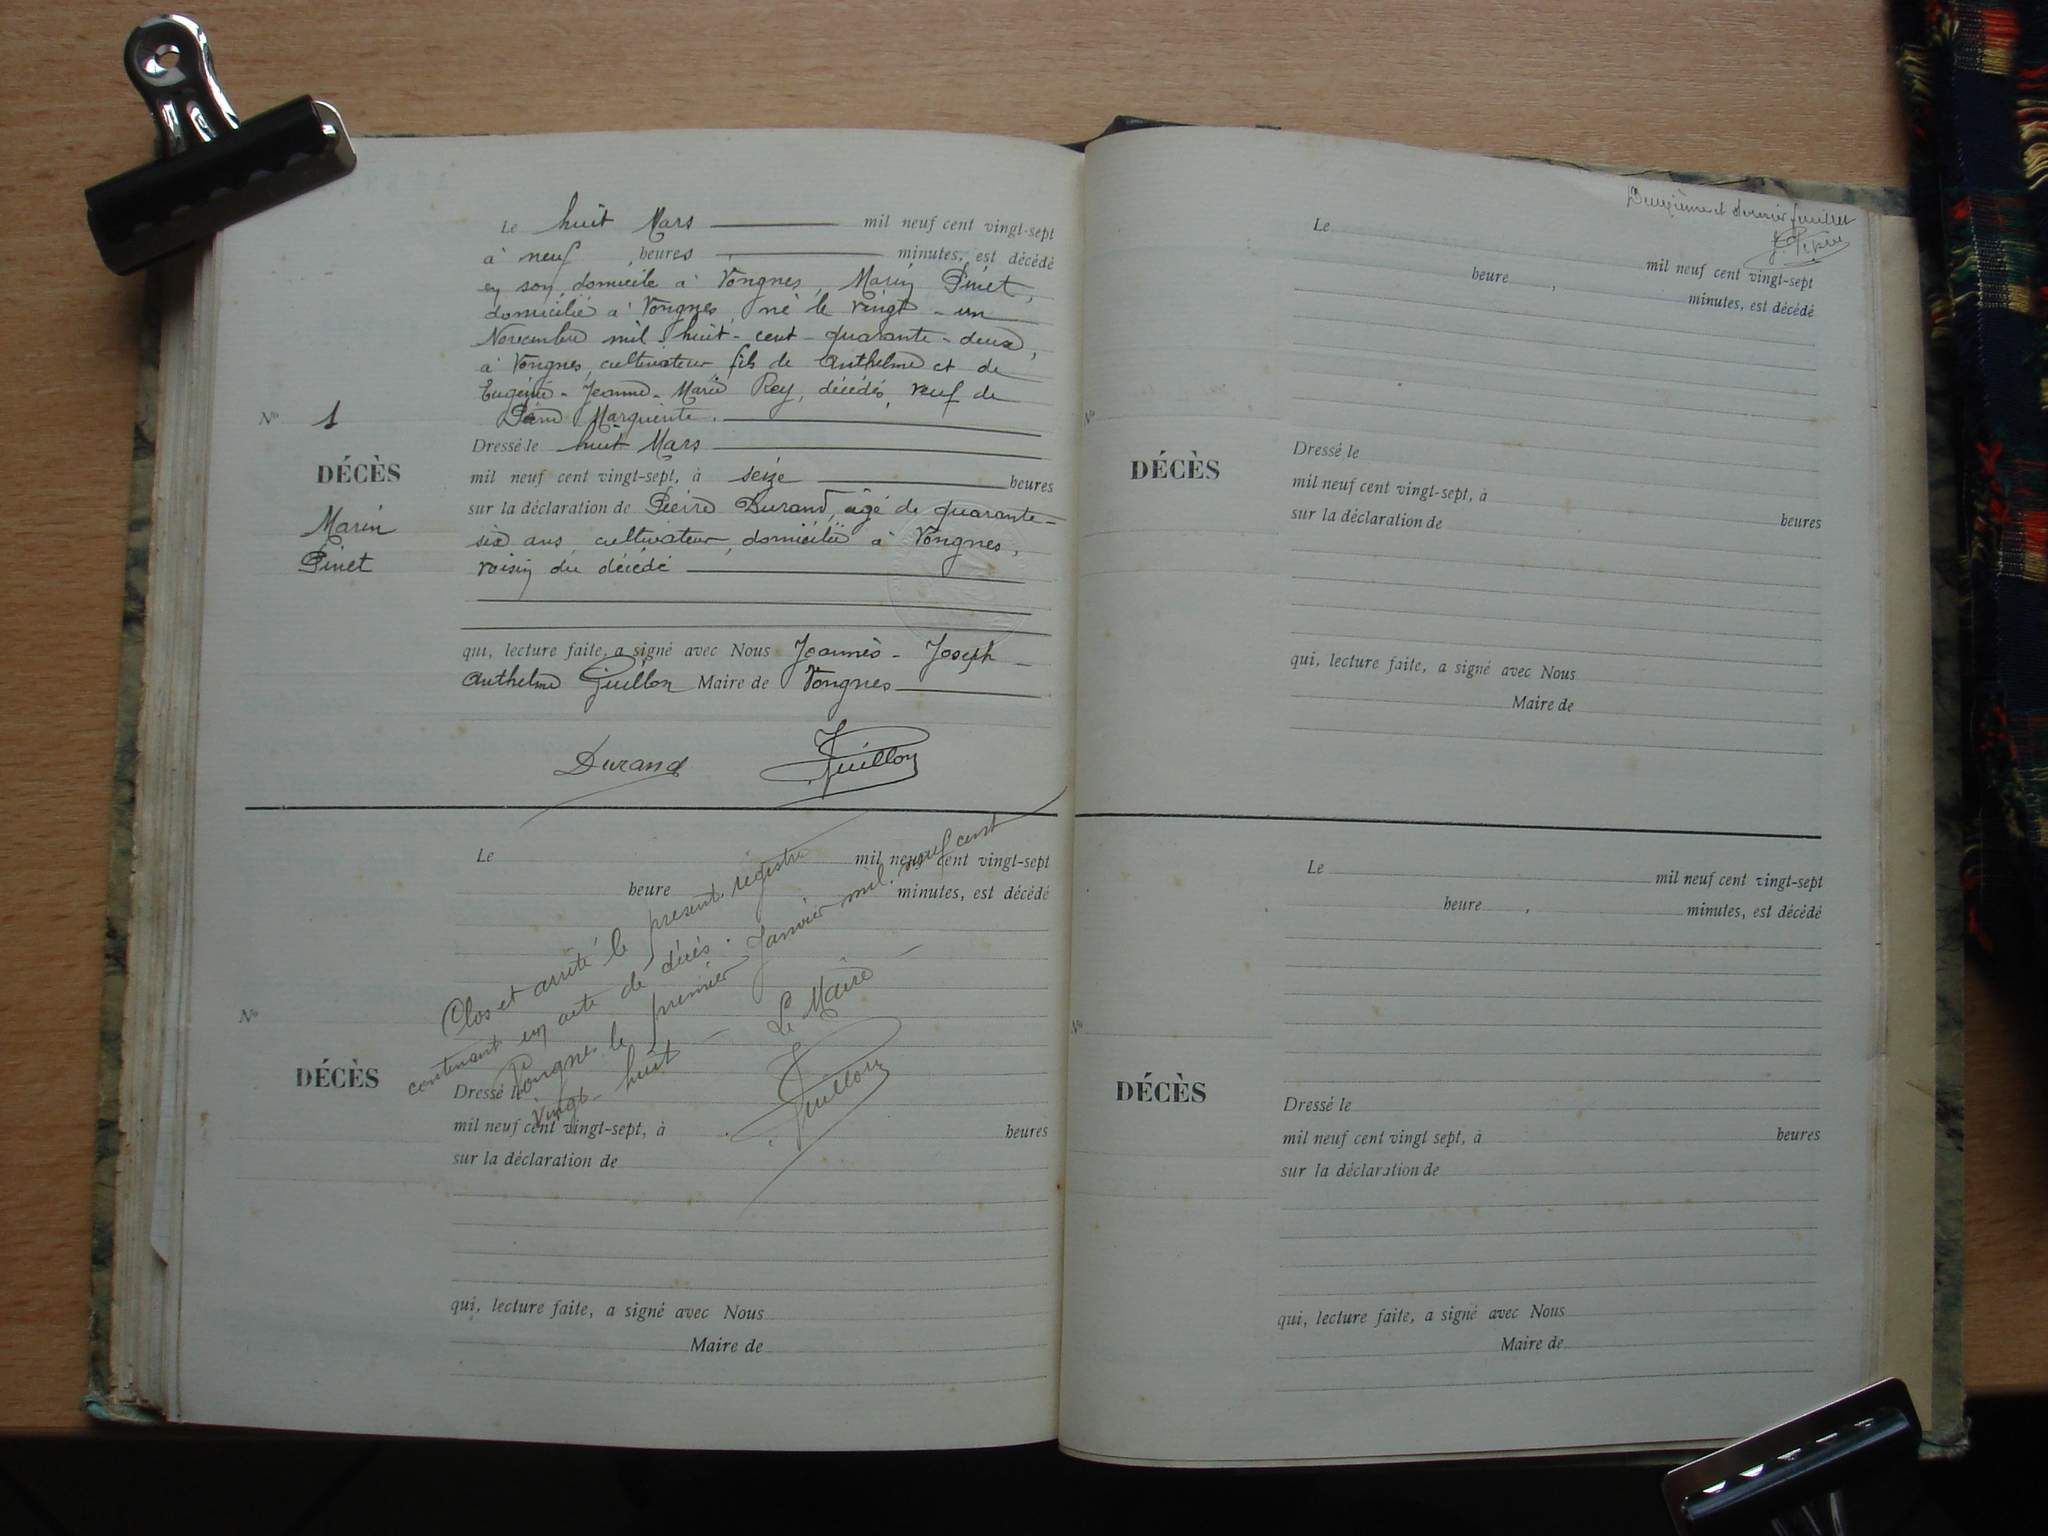 Le huit Mars mil neuf cent vingt-sept
à neuf heures, minutes, est décédé
en son domicile à Vongnes, Marin Pinet,
domicilié à Vongnes, né le vingt-un
Novembre mil huit-cent-quarante-deux,
à Vongnes, cultivateur, fils de Anthelme et de
Eugénie-Jeanne-Marie Rey, décédés, veuf de
Marguerite.
N° 1
DÉCÈS
Marin
Pinet
Dressé le huit Mars
mil neuf cent vingt-sept, à seize heures
sur la déclaration de Pierre Durand, âgé de quarante-
six ans, cultivateur, domicilié à Vongnes,
voisin du décédé
qui, lecture faite, a signé avec Nous Joannès-Joseph-
Anthelme Guillon Maire de Vongnes
Durand Guillon
Le mil neuf cent vingt-sept
heure minutes, est décédé
N°
DÉCÈS
Dressé le
mil neuf cent vingt-sept, à heures
sur la déclaration de
qui, lecture faite, a signé avec Nous
Maire de
Clos et arrêté le présent registre
contenant un acte de décès.
Vongnes le premier Janvier mil neuf cent
vingt-huit Le Maire
Guillon
Deuxième et dernier feuillet
Le mil neuf cent vingt-sept
heure, minutes, est décédé
N°
DÉCÈS
Dressé le
mil neuf cent vingt-sept, à heures
sur la déclaration de
qui, lecture faite, a signé avec Nous
Maire de
Le mil neuf cent vingt-sept
heure, minutes, est décédé
N°
DÉCÈS
Dressé le
mil neuf cent vingt sept, à heures
sur la déclaration de
qui, lecture faite, a signé avec Nous
Maire de